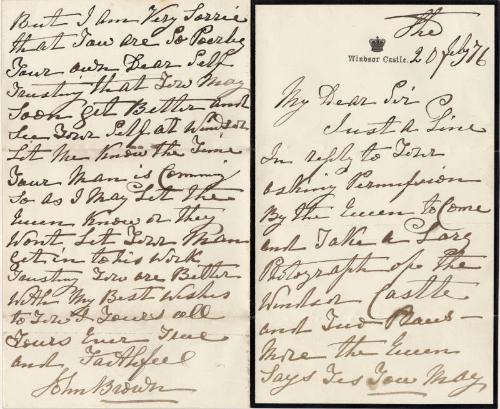 The
Windsor Castle.
20 July 76
My Dear Sir
Just a Line
In reply to Your
asking Permission
By the Queen to Come
and Take a Larg
Photograph of The
Windsor Castle
and Two
More the Queen
Says Yes You May
But I am Very Sorrie
that You are So Poorley
Your own Dear Self
Trusting that You May
Soon get Better and
See Your Self at Windsor
Let Me Know the Time
Your Man is Comming
So as I May Let The
Queen Know or they
Wont Let Your Man
get in to his Work
Trusting You are Better
With My Best Wishes
to You & Yours all
Yours Ever True
and Faithful
John Brown